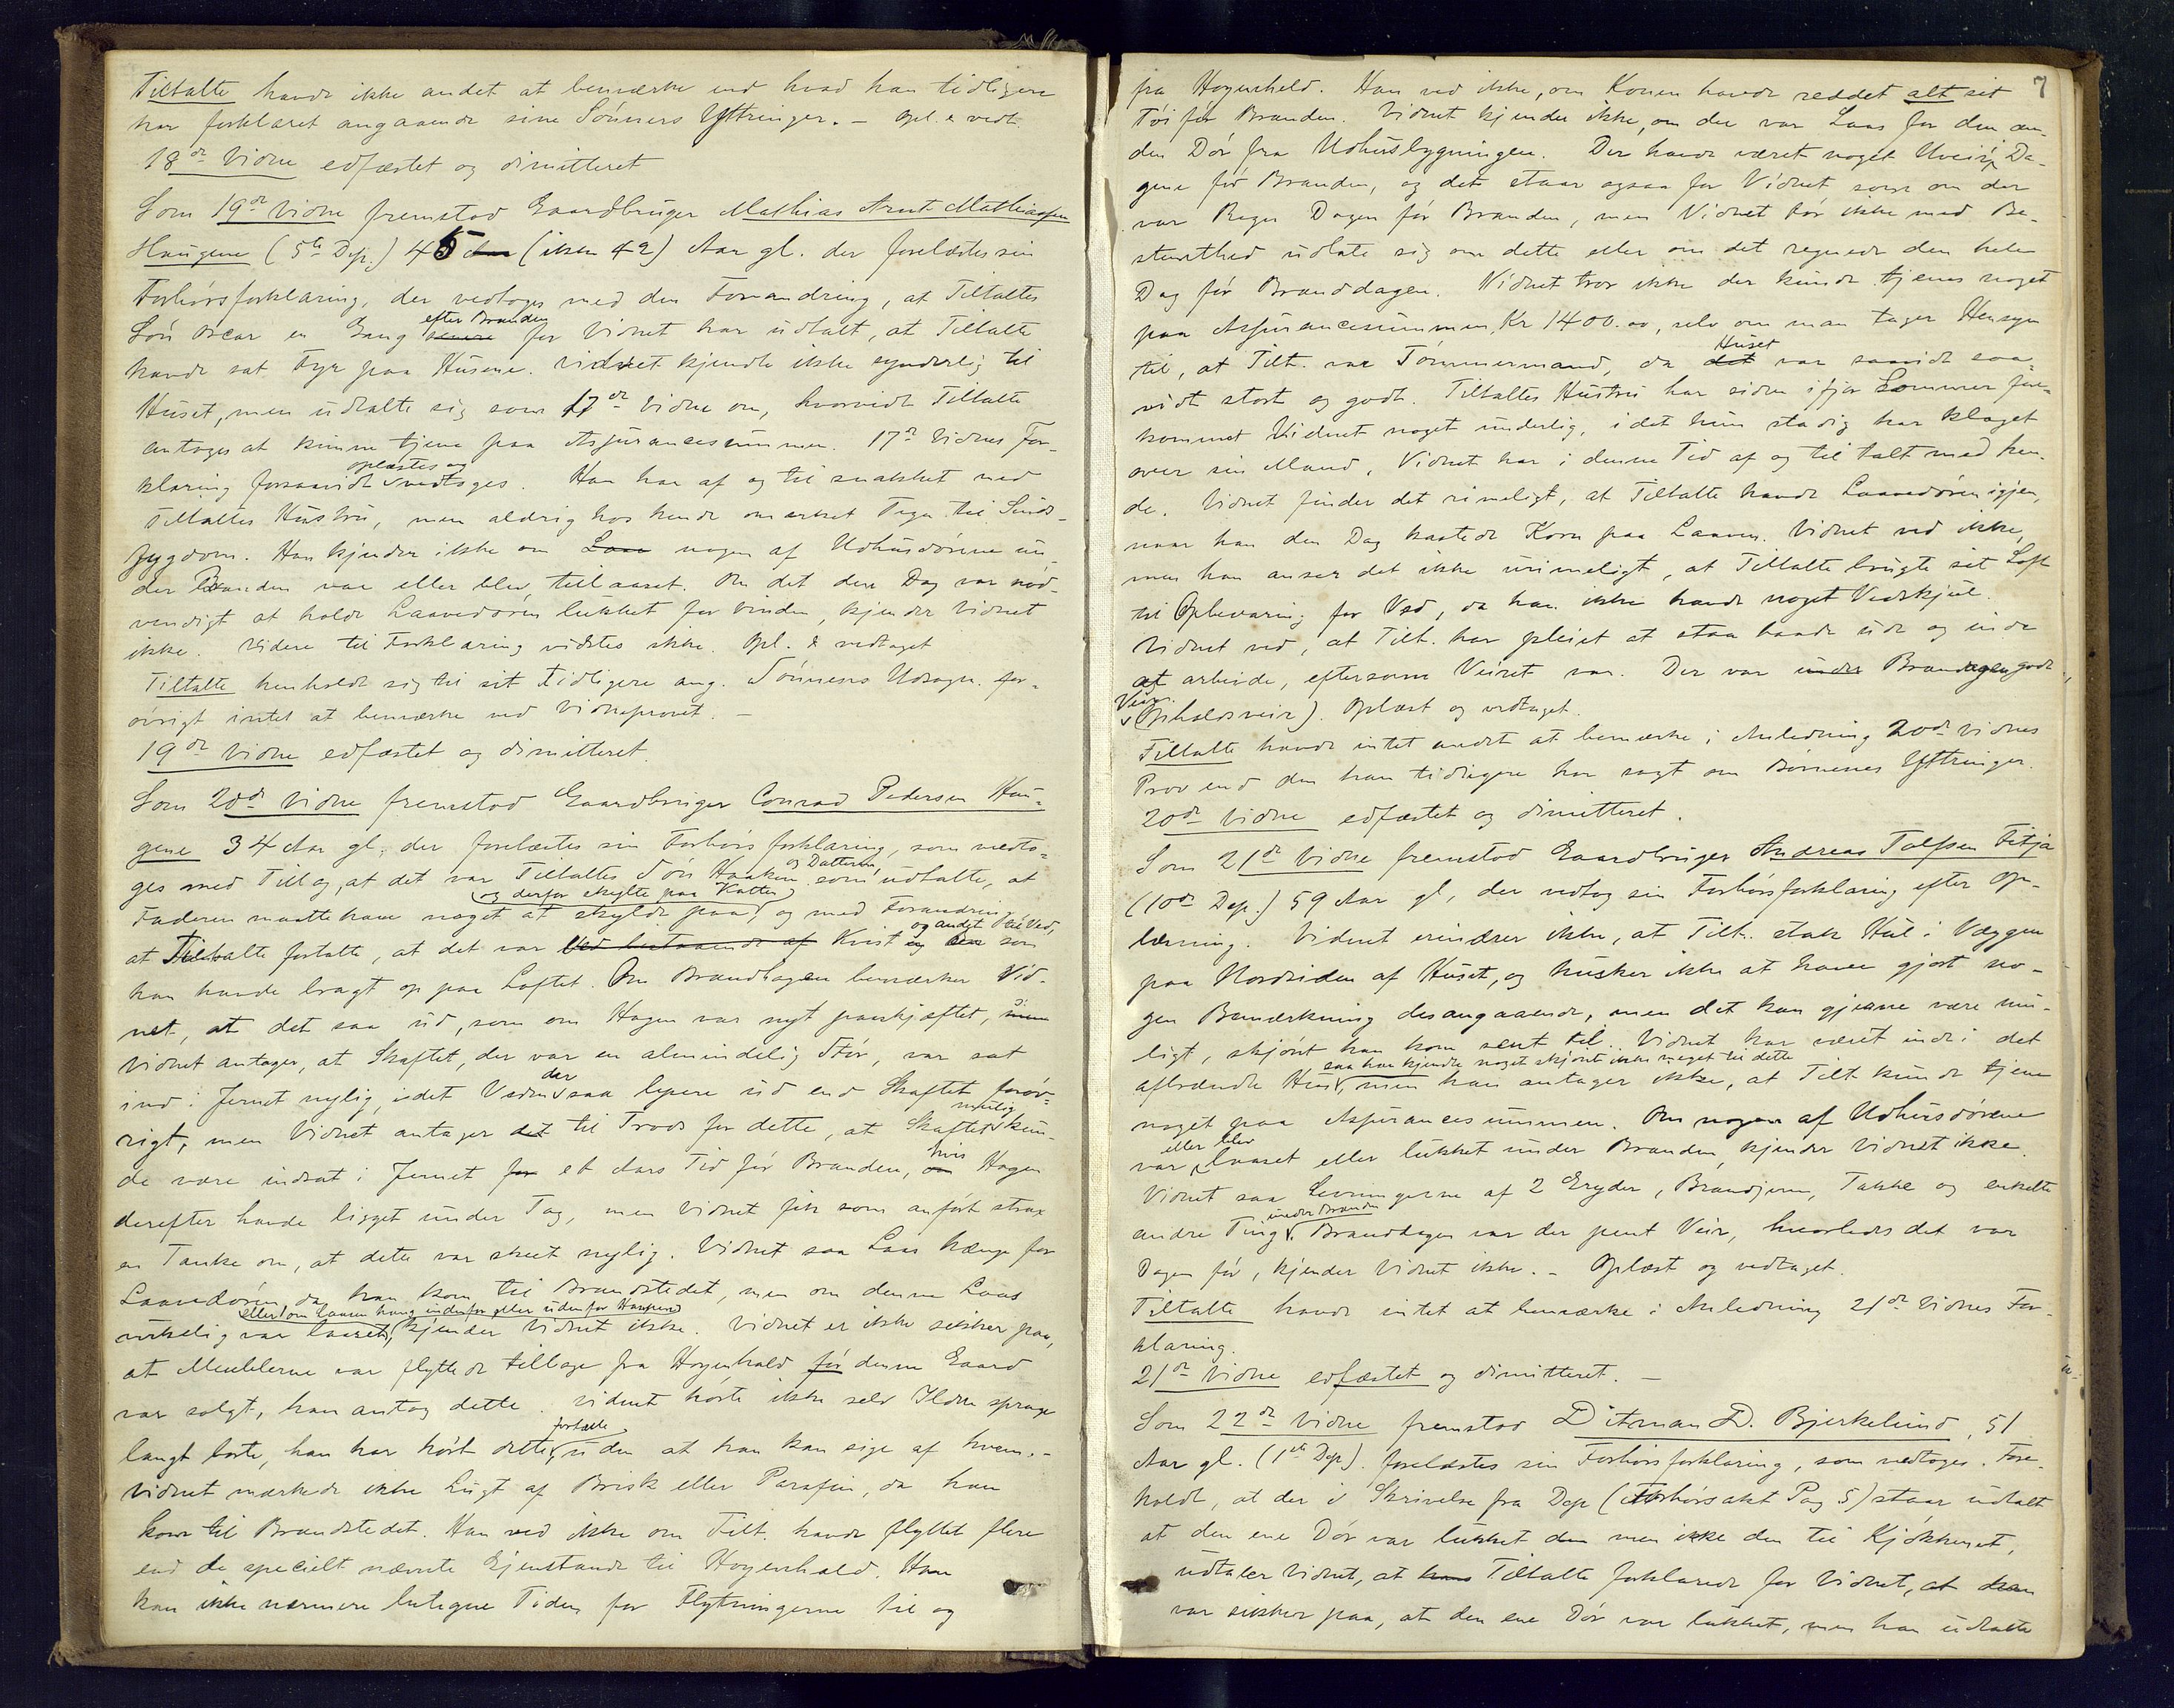 Tiltalte havde ikke andet at bemærke end hvad han tidligere
har forklaret angaaende sine Sønners Yttringer. – Opl. & vedt.
18de Vidne edfæstet og dimitteret
Som 19de Vidne fremstod Gaardbruger Mathias Arnt Mathiassen
Haugene (5te Dep.) 45 Aar (ikke 42) Aar gl. der forelæstes sin
Forhørsforklaring, der vedtoges med den Forandring, at Tiltaltes
Søn Oscar en Gang senere efter Branden for Vidnet har udtalt, at Tiltalte
havde sat Fyr paa Husene. Vidnet kjendte ikke synderlig til
Huset, men udtalte sig som 17de Vidne om, hvorvidt Tiltalte
antages at kunne tjene paa Assurancesummen. 17de Vidnes For-
klaring forsaavidt oplæstes og vedtoges. Han har af og til snakket med
Tiltaltes Hustru, men aldrig hos hende mærket Tegn til Sinds-
sygdom. Han kjender ikke om Laas nogen af Udhusdørene un-
der Branden var eller blev tillaaset. Om det den Dag var nød-
vendigt at holde Laavedøren lukket for Vinden, kjender Vidnet
ikke. Videre til Forklaring vidstes ikke. Opl. & vedtaget
Tiltalte henholdt sig til sit Tidligere ang. Sønnens Udsagn. for-
øvrigt intet at bemærke ved Vidneprovet. –
19de Vidne edfæstet og dimitteret.
Som 20de Vidne fremstod Gaardbruger Conrad Pedersen Hau-
gene 34 Aar gl. der forelæstes sin Forhørsforklaring, som vedto-
ges med Tillæg, at det var Tiltaltes Søn Haaken og Datteren, som udtalte, at
Faderen maatte have noget at skylde paa (og derfor skylte paa Katten), og med Forandring
at Tiltalte fortalte, at det var Ved bestaaende af Kvist og andet til Ved, som
han havde bragt op paa Loftet. Om Brandhagen bemærker Vid-
net, at det saa ud, som om Hagen var nyt paaskjæftet,
Vidnet antager, at Skaftet, der var en almindelig Stør, var sat
ind i Jernet nylig, idet Veden der saa lysere ud end Skaftet forøv-
rigt, men Vidnet antager det til Trods for dette, at Skaftet mulig kun-
de være indsat i Jernet for et Aars Tid før Branden, om hvis Hagen
derefter havde ligget under Tag, men Vidnet fik som anført strax
en Tanke om, at dette var skeet nylig. Vidnet saa Laas hænge for
Laavedøren, da han kom til Brandstedet, men om denne Laas
virkelig var laaset, eller om Laasen hang indenfor eller udenfor Haspen kjender Vidnet ikke. Vidnet er ikke sikker paa,
at Meublerne var flyttede tilbage fra Hogenhold før denne Gaard
var solgt, han antog dette. Vidnet hørte ikke selv Ilden sprage
langt borte, han har hørt dette fortalte uden at han kan sige af hvem. –
Vidnet mærkede ikke Lugt af Brisk eller Parafin, da han
kom til Brandstedet. Han ved ikke om Tilt. havde flyttet flere
end de specielt nævnte Gjenstande til Hogenhold. Han
kan ikke nærmere betegne Tiden for Flytningerne til og
7
fra Hogenhold. Han ved ikke, om Konen havde reddet alt sit
Tøi før Branden. Vidnet kjender ikke, om der var Laas for den an-
den Dør fra Udhusbygningen. Der havde været noget Uveir Da-
gene før Branden, og det staar ogsaa for Vidnet som om der
var Regn Dagen før Branden, men Vidnet tør ikke med Be-
stemthed udlate sig om dette eller om det regnede den hele
Dag før Branddagen. Vidnet tror ikke der kunde tjenes noget
paa Assurancesummen, Kr 1400.00, selv om man tager Hensyn
til, at Tilt. var Tømmermand, da det Huset var saavidt saa-
vidt stort og godt. Tiltaltes Hustru har siden ifjor Sommer fore-
kommet Vidnet noget underlig, idet hun stadig har klaget
over sin Mand. Vidnet har i denne Tid af og til talt med hen-
de. Vidnet finder det rimeligt, at Tiltalte havde Laavedøren igjen,
naar han den Dag kastede Korn paa Laaven. Vidnet ved ikke,
men han anser det ikke urimeligt, at Tiltalte brugte sit Loft
til Opbevaring for Ved, da han ikke havde noget Vedskjul.
Vidnet ved, at Tilt. har pleiet at staa baade ude og inde
at arbeide, eftersom Veiret var. Der var under Branddagen godt
Veir (Opholdsveir). Oplæst og vedtaget.
Tiltalte havde intet andet at bemærke i Anledning 20de Vidnes
Prov end den han tidligere har sagt om Børnenes Yttringer.
20de Vidne edfæstet og dimitteret.
Som 21de Vidne fremstod Gaardbruger Andreas Tolfsen Fitja
(10de Dep.) 59 Aar gl, der vedtog sin Forhørsforklaring efter Op-
læsning. Vidnet erindrer ikke, at Tilt. stak Hul i Væggen
paa Nordsiden af Huset, og husker ikke at have gjort no-
gen Bemærkning desangaaende, men det kan gjerne være mu-
ligt, skjønt han kom sent til. Vidnet har været inde i det
afbrændte Hus, saa han kjendte noget skjønt ikke meget til dette men han antager ikke, at Tilt. kunde tjene
noget paa Assurancesummen. Om nogen af Udhusdørene
var eller blev laaset eller lukket under Branden, kjender Vidnet ikke.
Vidnet saa Levningerne af 2 Gryder, Brandjern, Takke og enkelte
andre Ting under Branden. Branddagen var der pent Veir, hvorledes det var
Dagen før, kjender Vidnet ikke. – Oplæst og vedtaget.
Tiltalte havde intet at bemærke i Anledning 21de Vidnes For-
klaring.
21de Vidne edfæstet og dimitteret. –
Som 22de Vidne fremstod Ditman D. Bjerkelund, 51
Aar gl. (1ste Dep). forelæstes sin Forhørsforklaring, som vedtoges. Fore-
holdt, at der i Skrivelse fra Dep (Forhørsakt Pag 5) staar udtalt
at den ene Dør var lukket den men ikke den til Kjøkkenet,
udtaler Vidnet, at hans Tiltalte forklarede for Vidnet, at han
var sikker paa, at den ene Dør var lukket, men han udtalte